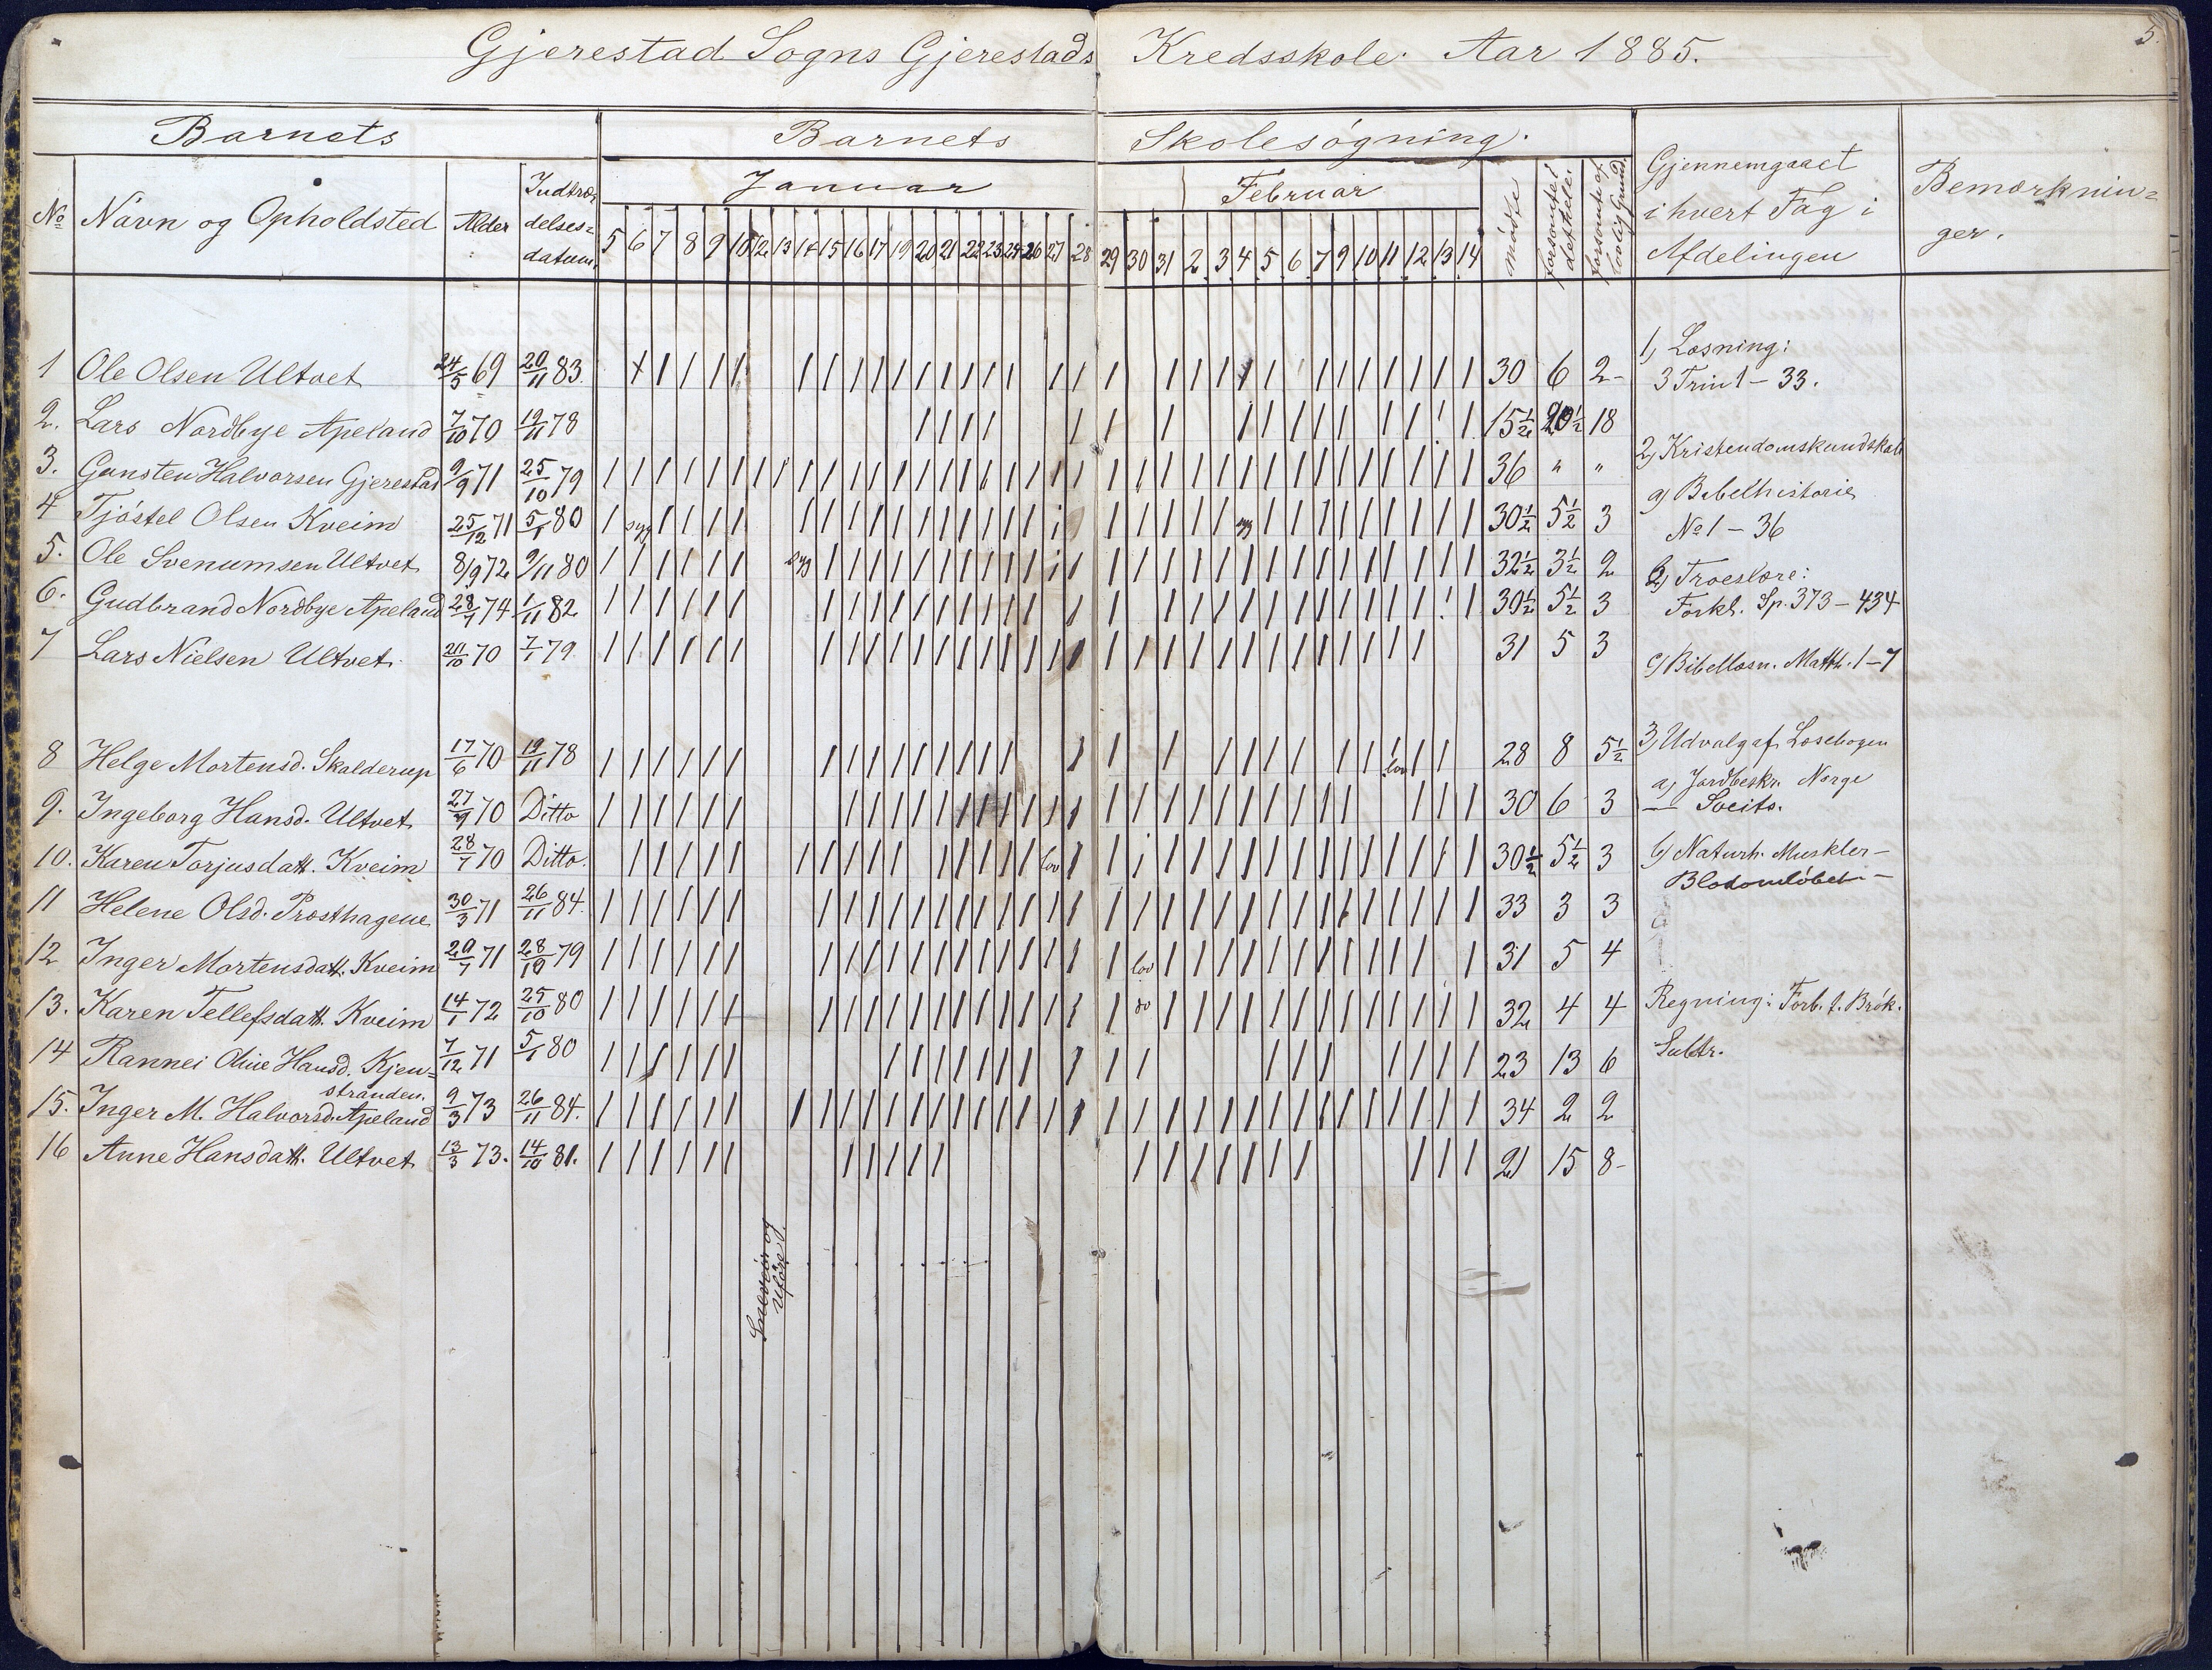 Gjerestad Sogns Gjerestads Kredsskole. Aar 1885.
5.
Barnets
Barnets Skolesøgning.
Gjennemgaaet i hvert Fag i Afdelingen
Bemærkninger.
№ Navn og Opholdsted Alder Indtrædelsesdatum.
Januar
5 6 7 8 9 10 12 13 14 15 16 17 19 20 21 22 23 24 26 27 28 29 30 31
Februar
2 3 4 5 6 7 9 10 11 12 13 14
mødte
forsømte i det hele.
forsømte af lovlig Grund.
1 Ole Olsen Ultvet 24/5 69 20/11 83. 30 6 2-
2. Lars Nordbye Apeland 7/10 70 19/11 78 15½ 20½ 18
3. Gunsten Halvorsen Gjerestad 9/9 71 25/10 79 36 " "
4 Tjøstel Olsen Kveim 25/12 71 5/1 80 syg syg 30½ 5½ 3
5. Ole Svenumsen Ultvet 8/9 72 9/11 80 syg 32½ 3½ 2
6. Gudbrand Nordbye Apeland 28/1 74 1/11 82 30½ 5½ 3
7 Lars Nielsen Ultvet. 20/10 70 7/1 79. 31 5 3
8 Helge Mortensd. Skalderup 17/6 70 19/11 78 lov 28 8 5½
9. Ingeborg Hansd. Ultvet 27/9 70 Ditto 30 6 3
10. Karen Torjusdatt. Kveim 28/7 70 Ditto. lov 30½ 5½ 3
11 Helene Olsd. Præsthagene 30/3 71 26/11 84. 33 3 3
12 Inger Mortensdatt. Kveim 20/7 71 28/10 79 lov 31 5 4
13. Karen Tellefsdatt. Kveim 14/1 72 25/10 80 do 32 4 4
14 Rannei Oline Hansd. Kjenstranden. 7/12 71 5/1 80 23 13 6
15. Inger M. Halvorsd. Apeland 9/3 73 26/11 84. 34 2 2
16 Anne Hansdatt. Ultvet 13/3 73. 14/10 81. 21 15 8-
Sneveir og Uføre.
1) Læsning:
3 Trin 1 - 33.
2) Kristendomskundskab
a) Bibelhistorie
№ 1 - 36
b) Troeslære:
Forkl. Sp. 373 - 434
c) Bibellæsn. Matth. 1-7
3) Udvalg af Læsebogen
a) Jordbeskr. Norge
— Sveits.
b) Naturh. Muskler -
Blodomløbet -
Regning: Forb. t. Brøk.
Subtr.